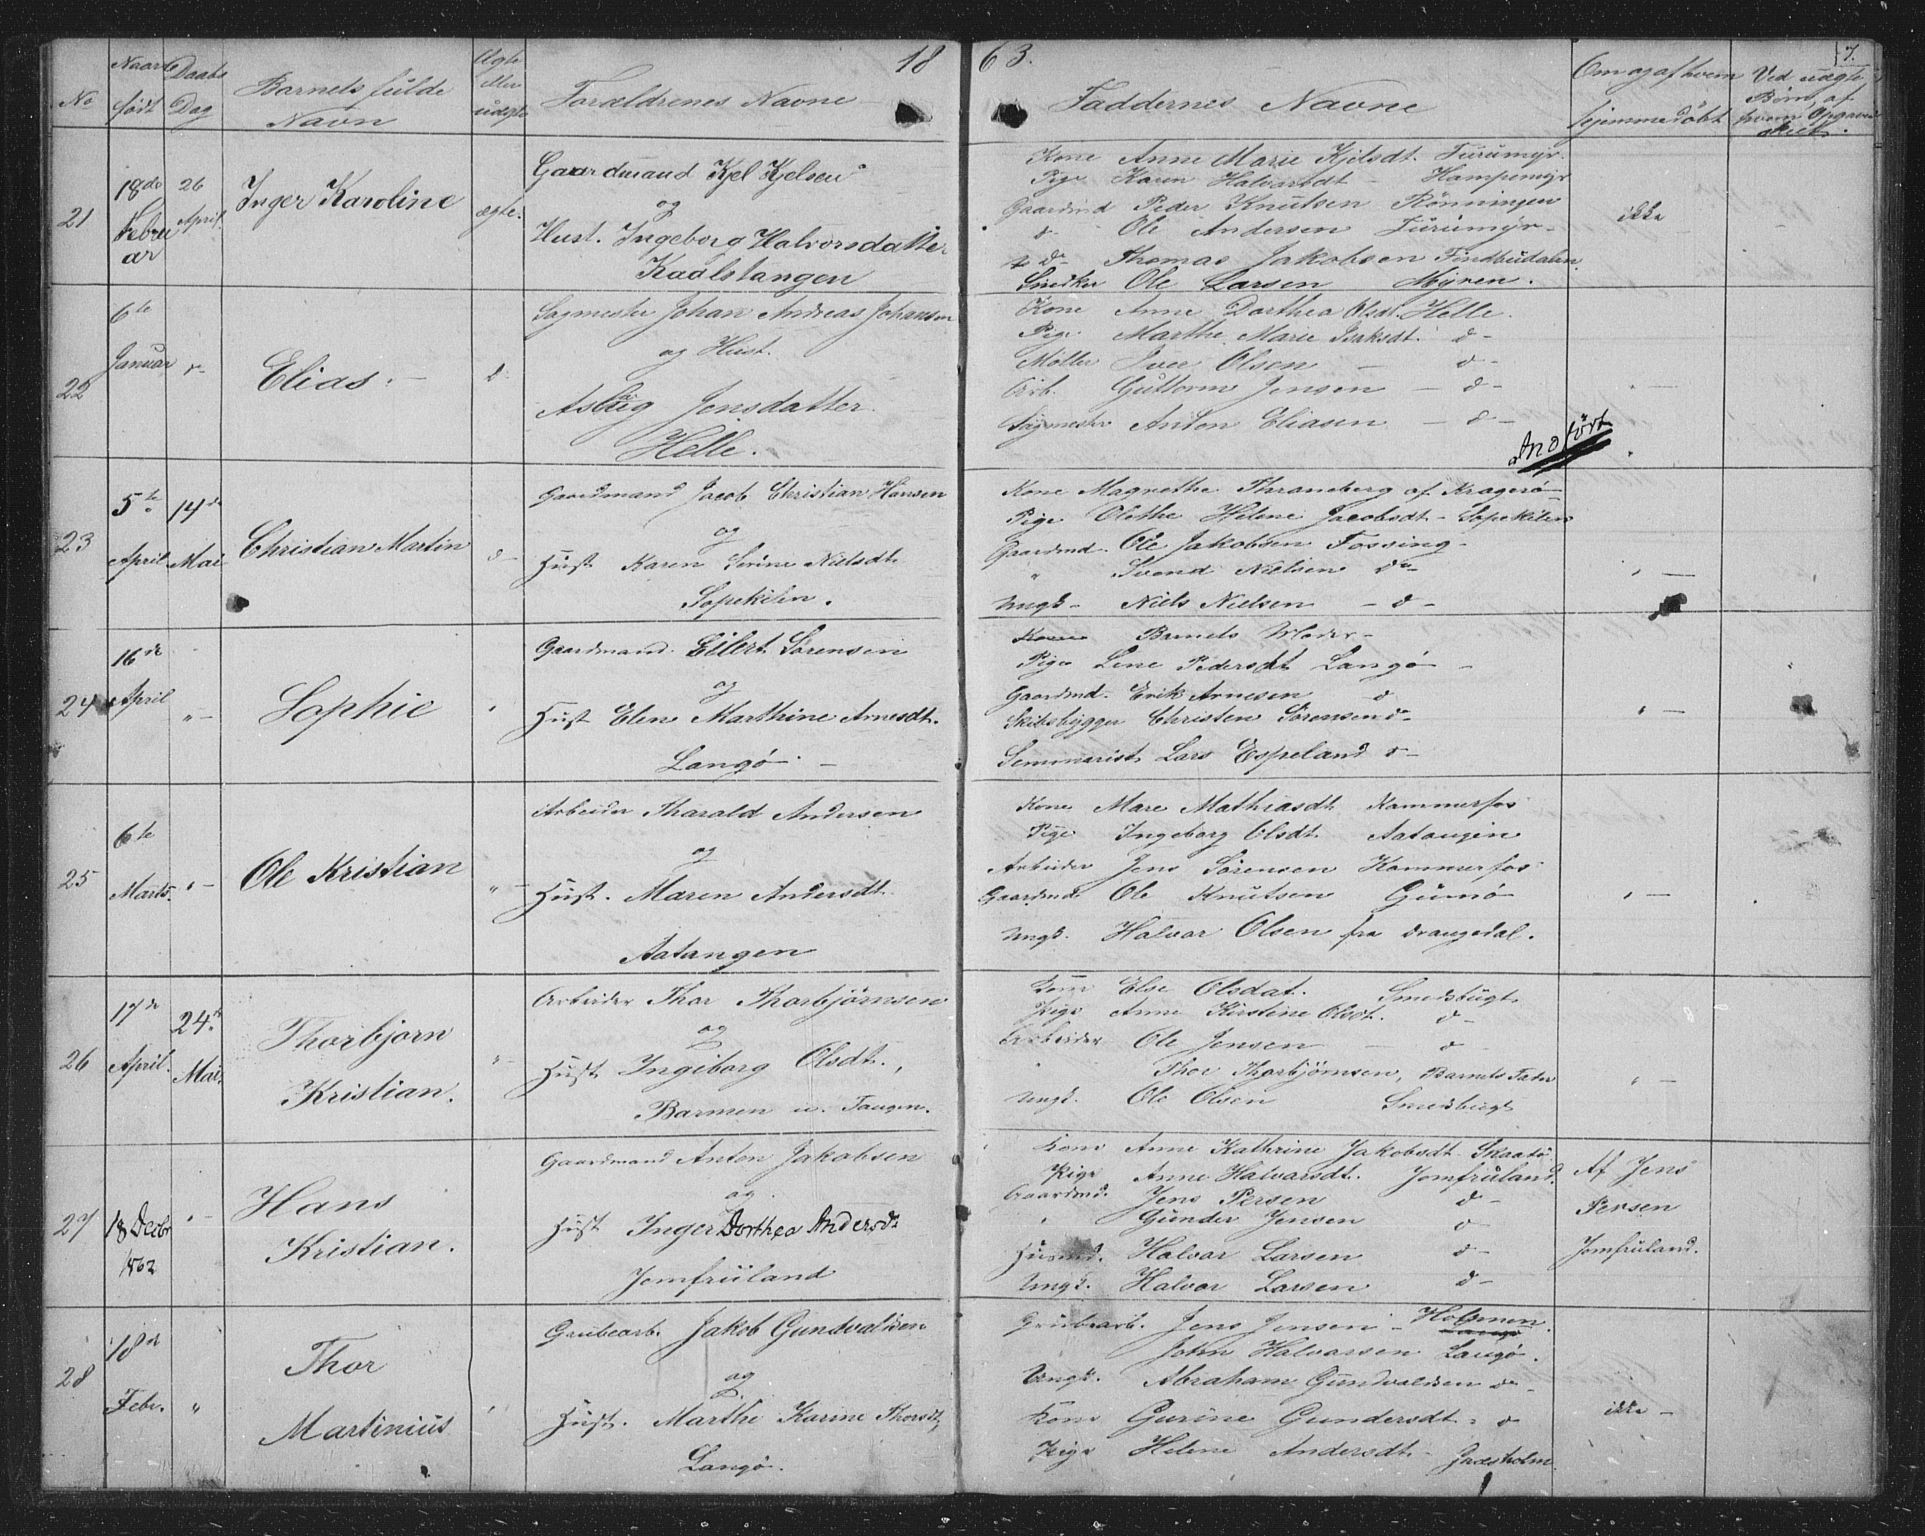 18
63.
7.
No
Naar født
Daabs Dag
Barnets fulde Navn
Ægte eller uægte
Forældrenes Navne
Faddernes Navne
Om og af hvem hjemmedöbt
Ved uægte Börn, af hvem Opgaven skeet.
21
18de Februar
26 April
Inger Karoline
ægte.
Gaardmand Kjel Kjelsen
og
Hust. Ingeborg Halvorsdatter
Kaalstangen
Kone Anne Marie Kjelsdt. Furumyr.
Pige Karen Halvorsdt - Hampemyr
Gaardmd Peder Knutsen Rönningen
d- Ole Andersen Furumyr-
d- Thomas Jakobsen Findbudalen
Snedker Ole Larsen Myren.
ikke
22
6te Januar
d-
Elias.-
d-
Sagmester Johan Andreas Johansen
og Hust.
Aslaug Jensdatter.
Helle.
Kone Anne Dorthea Olsdt. Helle.
Pige Marthe Marie Isaksdt. d-
Möller Iver Olsen - d-
Arb. Guttorm Jensen - d-
Sagmester Anton Eliasen - d-
" -
Anført
23
5te April
14de Mai
Christian Martin
d-
Gaardmand Jacob Christian Hansen
og
Hust Karen Serine Nielsdt.
Sopekilen.
Kone Magrethe Thraneberg af Kragerö-
Pige Olethe Helene Jacobsdt - Sopekilen
Gaardmd. Ole Jakobsen Fossing-
" Svend Nielsen d-
Ungk- Niels Nielsen - d-
" -
24
16de April
" -
Sophie
"
Gaardmand. Eilert Sörensen
og
Hust Elen Marthine Arnesdt.
Langö. -
Kone Barnets Moder-
Pige Lene Pedersdt Langö -
Gaardmd. Erik Arnesen d
Skibsbygger Christen Sörensen d-
Seminarist Lars Espeland d-
" -
25
6te Marts.
" -
Ole Kristian
" -
Arbeider Tharald Andersen
og
Hust. Maren Andersdt.
Aatangen
Kone Mare Mathiasdt. Kammerfos
Pige Ingeborg Olsdt. Aatangen
Arbeider Jens Sörensen Kammerfos
Gaardmd Ole Knutsen Gumö
Ungk. Halvor Olsen fra Drangedal.
" -
26
17de April.
24de Mai.
Thorbjorn
Kristian.
" -
Arbeider Thor Thorbjörnsen
og
Hust Ingiborg Olsdt.,
Barmen u. Tangen.
Kone Else Olsdat. Smedsbugt
Pige Anne Kirstine Olsdt. d-
Arbeider Ole Jensen - d-
" Thor Thorbjörnsen, Barnets Fader
Ungk. Ole Olsen Smedsbugt
" -
27
18 Decbr 1862
" -
Hans
Kristian.
Gaardmand Anton Jakobsen
og
Hust Inger Dorthea Andersdt
Jomfruland
Kone Anne Kathrine Jakobsdt Skaatö
Pige Anne Halvorsdt. Jomfruland.
Gaardmd. Jens Persen d-
" Gunder Jensen d-
Husmd. Halvor Larsen d-
Ungk. Halvor Larsen d-
Af Jens
Persen
Jomfruland.
28
18de Febr.
"
Thor
Martinius
"
Grubearb. Jakob Gundvaldsen
og
Hust. Marthe Karine Thorsdt,
Langö.
Grubearb. Jens Jensen - Holmen.
John Halvorsen Langö.
Ungk. Abraham Gundvaldsen d-
Kone Gurine Gundersdt - d
Pige Helene Andersdt -
ikke -